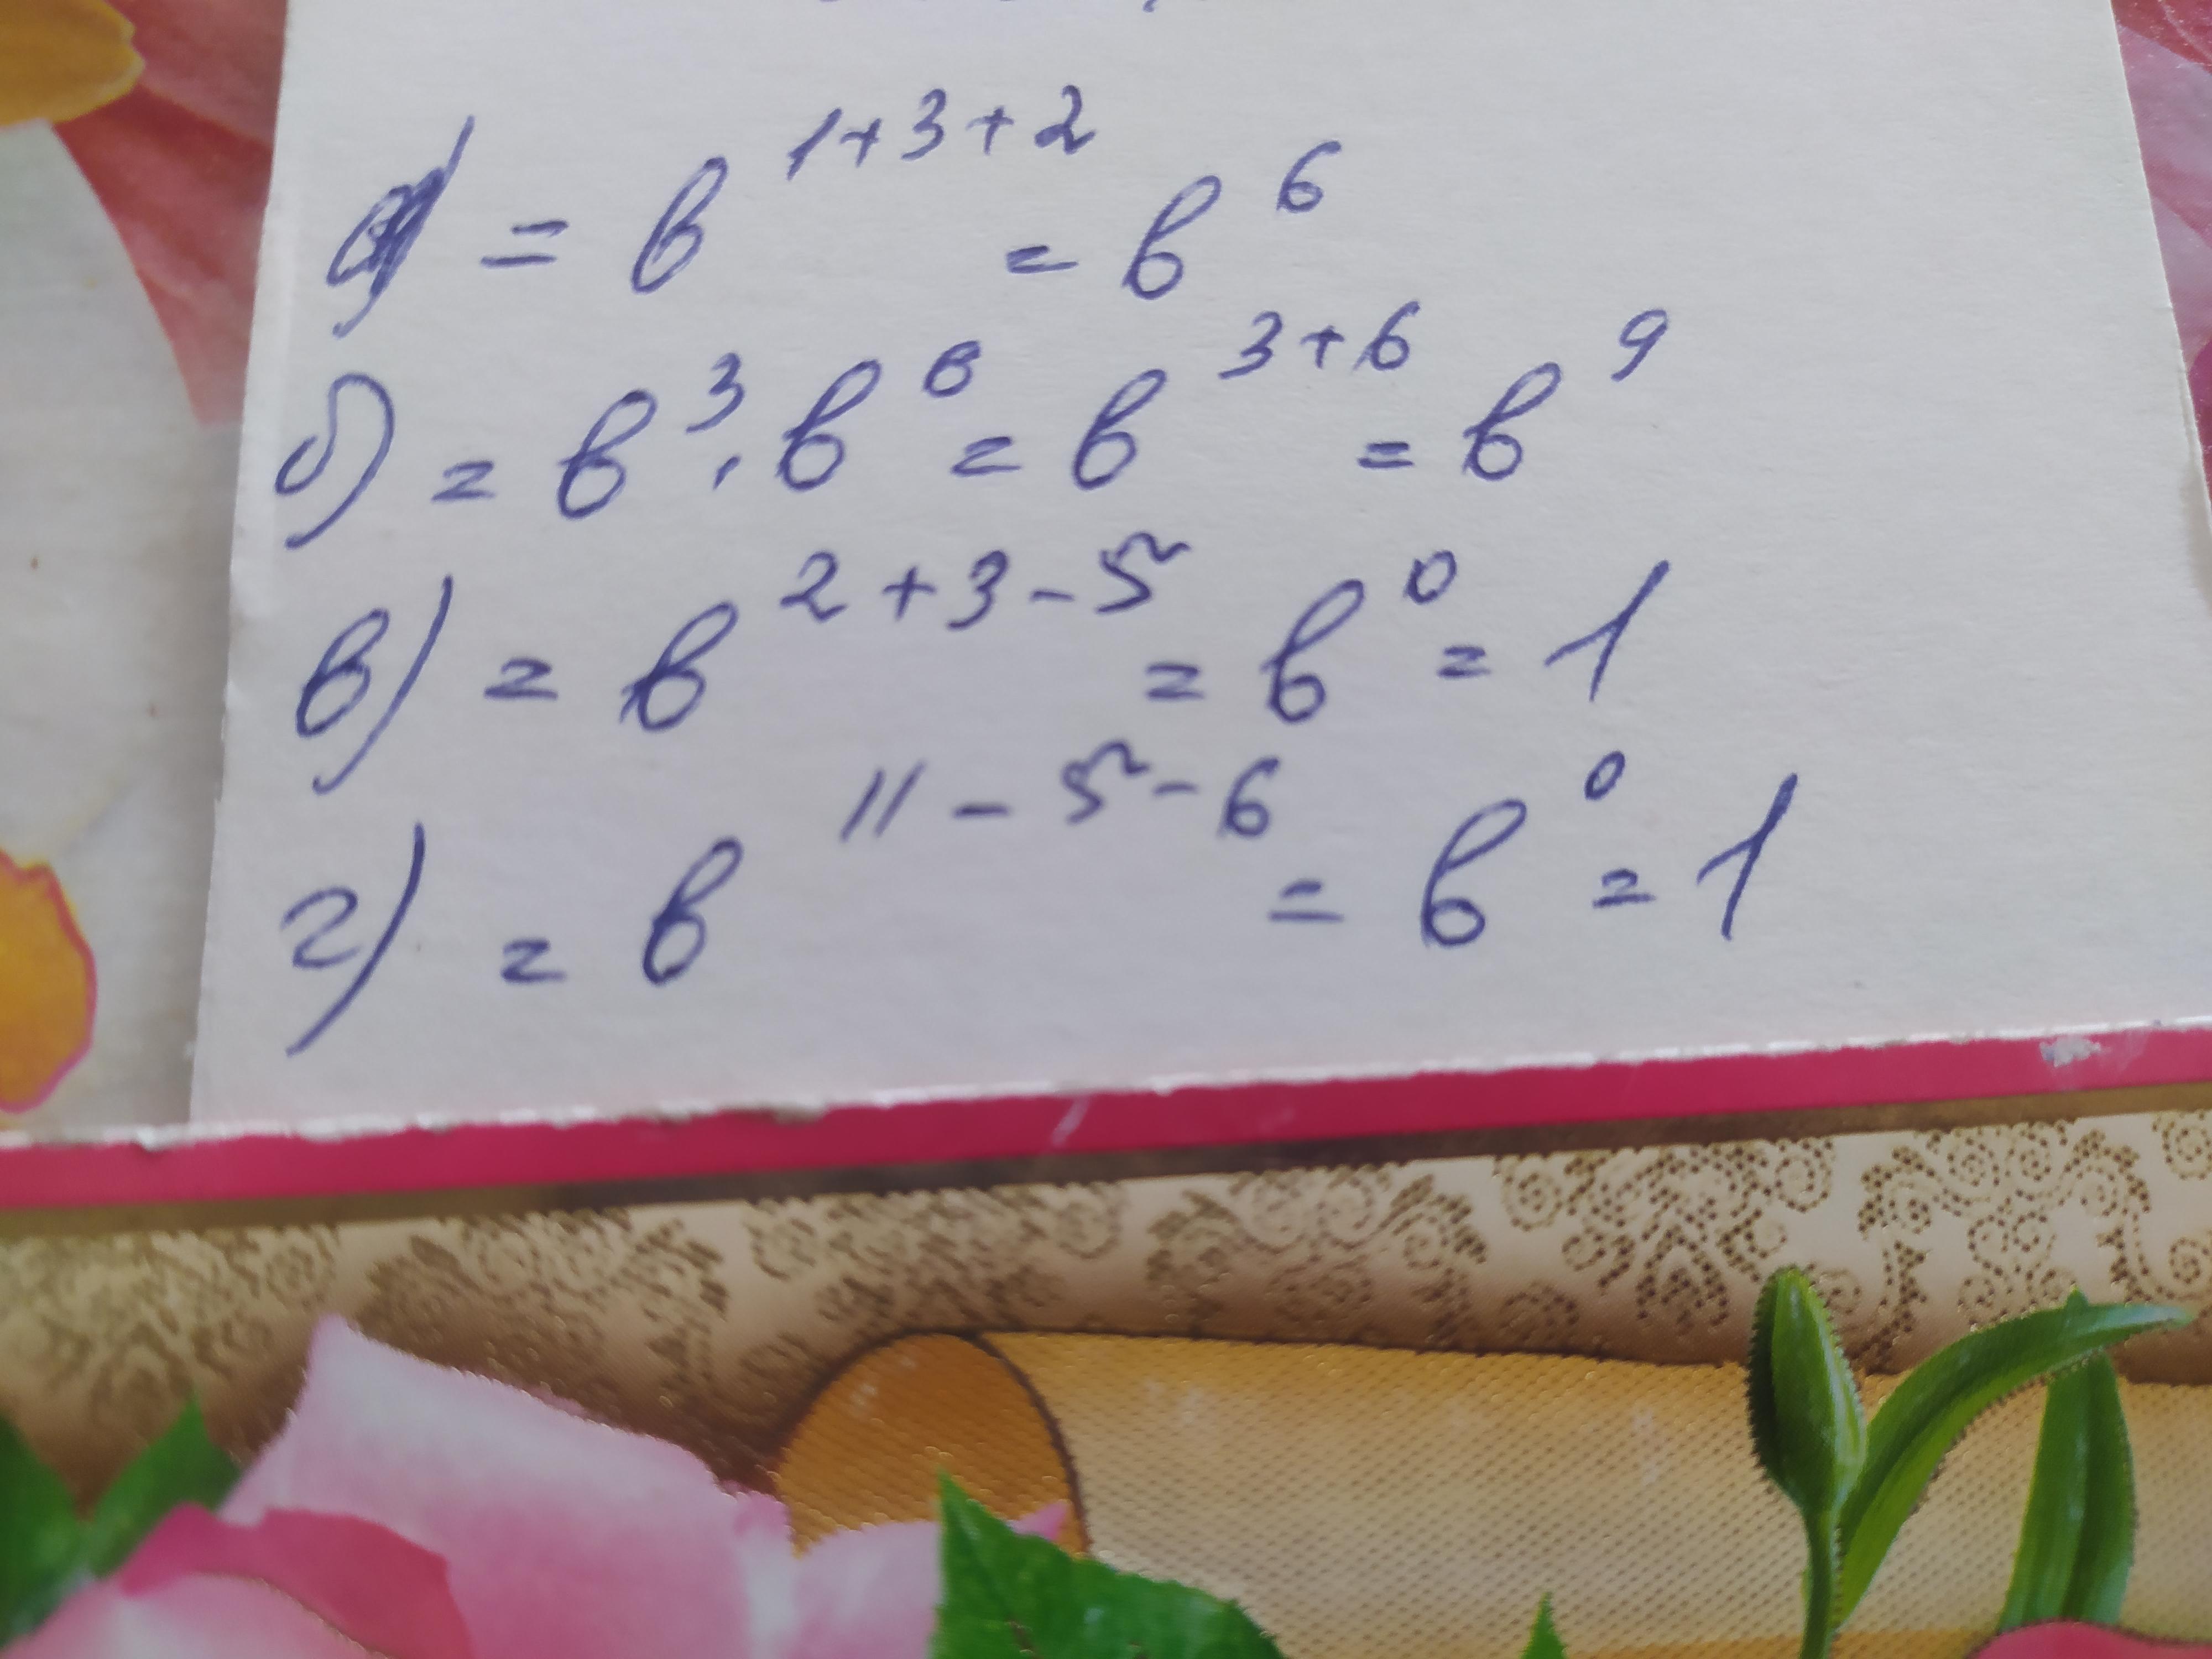 а) = в^{1+3+2} = в^6
б) = в^3 · в^6 = в^{3+6} = в^9
в) = в^{2+3-5} = в^0 = 1
г) = в^{11-5-6} = в^0 = 1